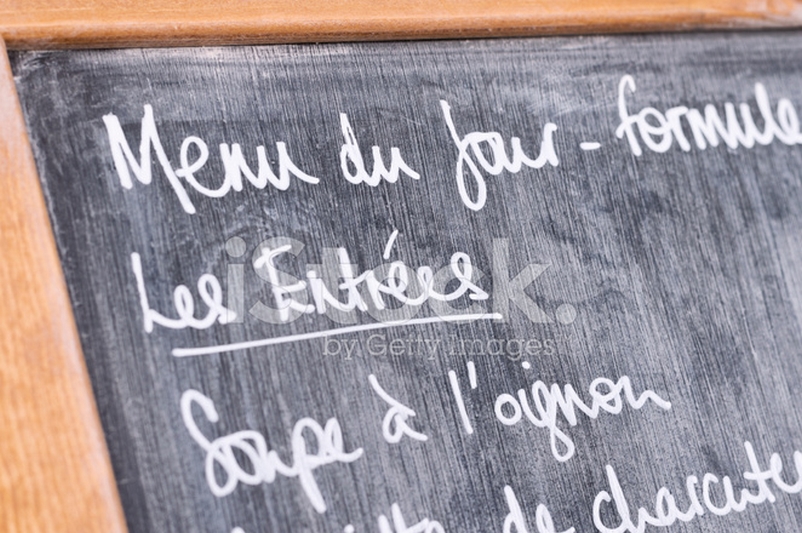 Menu du jour - formule
Les Entrées
iStock.
by Getty Images
Soupe à l'oignon
de